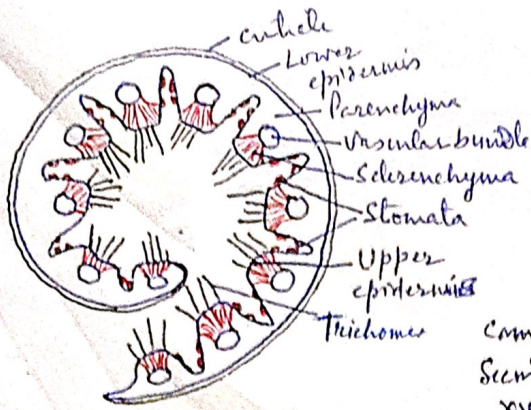 cuticle
Lower
epidermis
Parenchyma
Vascular bundle
Sclerenchyma
Stomata
Upper
epidermis
Trichomes